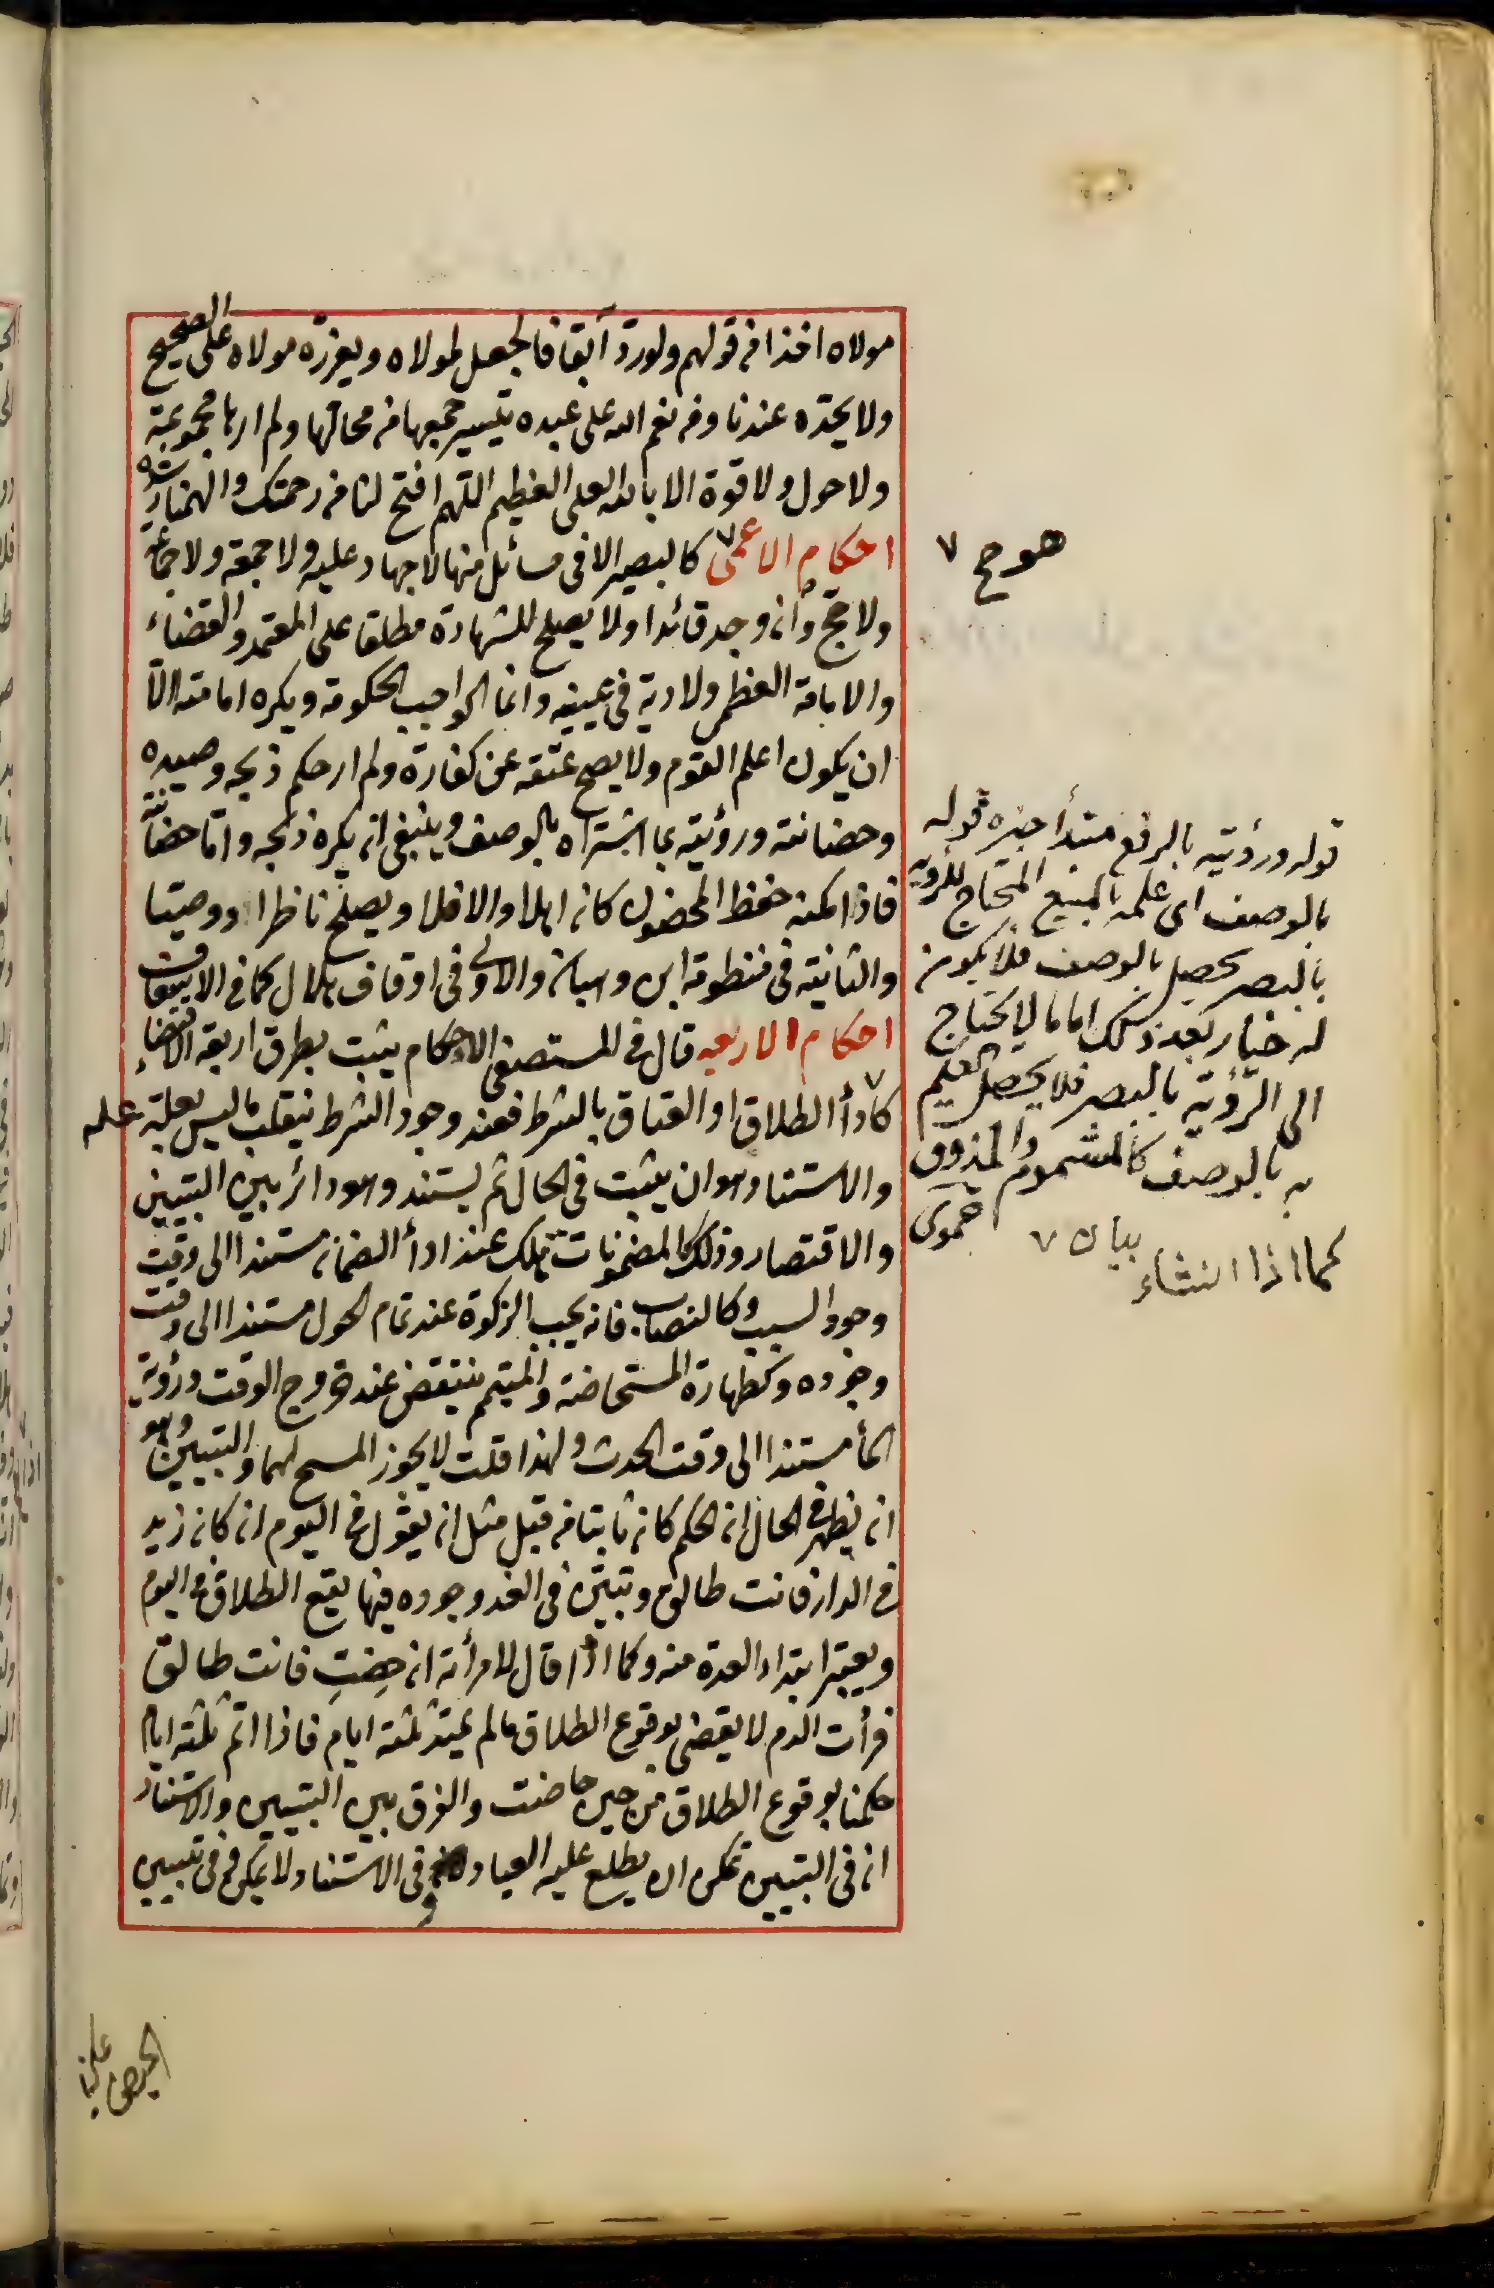 مولاه اخذا من قولهم ولو ردّ آبقا فالجعل لمولاه ويعزره مولاه على الصحيح
ولا يحدّه عندنا ومن نعم الله على عبده تيسير جمعها من محالها ولم ارها مجموعة
ولا حول ولا قوة الا بالله العلى العظيم اللهم افتح لنا من رحمتك والهمنا رشده
احكام الاعمى ٧ كالبصير الا فى مسائل منها لا جهاد عليه ولا جمعة ولا جماعة
ولا حج وان وجد قائدا ولا يصلح للشهادة مطلقا على المعتمد والقضاء
والامامة العظمى ولا دية فى عينه وانما الواجب الحكومة ويكره امامته الّا
ان يكون اعلم القوم ولا يصح عتقه عن كفارة ولم ار حكم ذبحه وصيده
وحضانته ورؤيته بما اشتراه بالوصف وينبغى ان يكره ذبحه وامّا حضانته
فاذا امكنه حفظ المحضون كان اهلا والا فلا ويصلح ناظرا ووصيّا
والثانية فى منظومة ابن وهبان والاولى فى اوقاف هلال كما فى الاسعاف
احكام الاربعه قال فى المستصفى الاحكام يثبت بطرق اربعة الاقتضاء
٧ كأدأ الطلاق او العتاق بالشرط فعند وجود الشرط ينقلب ما ليس بعلة علة
والاستناد وهو ان يثبت فى الحال ثم يستند وهو دائر بين التبيين
والاقتصار وذلك كالمضمونات تملك عند ادأ الضمان مستندا الى وقت
وجود السبب وكالنصاب فانه يجب الزكوة عند تمام الحول مستندا الى وقت
وجوده وكطهارة المستحاضة والمتيمم ينتقض عند خروج الوقت ورؤية
المأ مستندا الى وقت الحدث ولهذا قلت لا يجوز المسح لهما والتبيين وهو
ان يظهر فى الحال ان الحكم كان ثابتا من قبل مثل ان يقول فى اليوم ان كان زيد
فى الدار فانت طالق وتبيّن فى الغد وجوده فيها يقع الطلاق فى اليوم
ويعتبر ابتداء العدة منه وكما اذا قال لامرأته ان حِضتِ فانت طالق
فرأت الدم لا يقضى بوقوع الطلاق مالم يمتد ثلثة ايام فاذا اتم ثلثة ايام
حكمنا بوقوع الطلاق من حين حاضت والفرق بين التبيين والاستناد
ان فى التبيين يمكن ان يطلع عليه العباد وفى الاستناد لا يمكن وفى تبيين
هو ح ٧
قوله ورؤيته بالرفع مبتدأ خبره قوله
بالوصف اى علمه بالمبيع المحتاج للرؤية
بالبصر يحصل بالوصف فلا يكون
له خيار بعد ذلك اما ما لا يحتاج
الى الرؤية بالبصر فلا يحصل العلم
به بالوصف كالمشموم والمذوق
حموى
كما اذا انشاء بيان ٧
الحيض